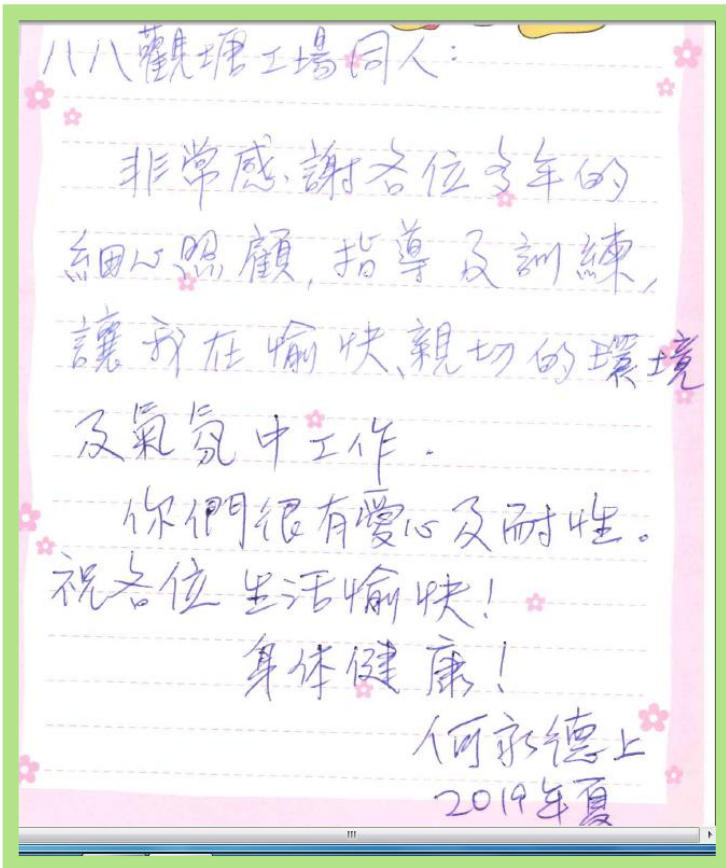 八八觀塘工場同人:
非常感謝各位多年的
細心照顧,指導及訓練,
讓我在愉快、親切的環境
及氣氛中工作.
你們很有愛心及耐性。
祝各位生活愉快!
身体健康!
何永德上
2019年夏